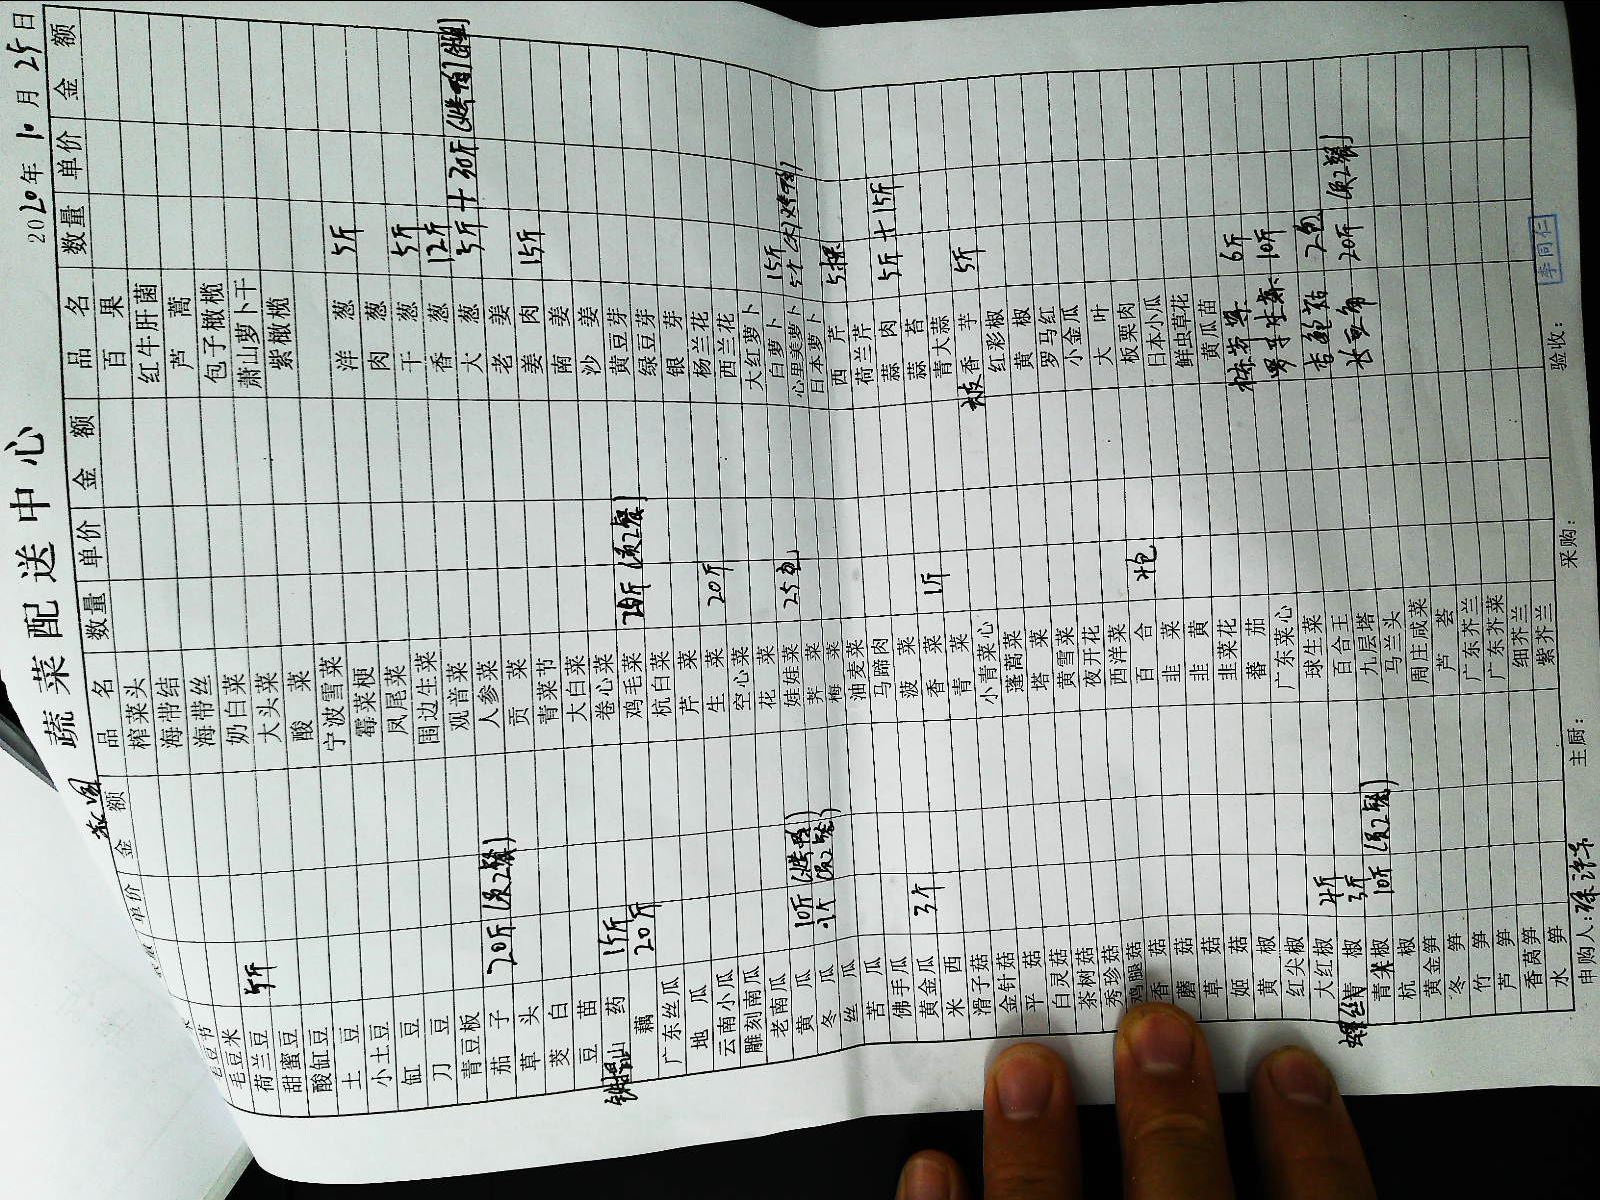 蔬菜配送中心
2020年10月25日
品名 数量 单价 金额
毛豆节
毛豆米
荷兰豆 5斤
甜蜜豆
酸缸豆
土豆
小土豆
缸豆
刀豆
青豆板
茄子 20斤(员工餐)
草头
茭白
豆苗
铁棍山药 15斤
藕 20斤
广东丝瓜
地瓜
云南小瓜
雕刻南瓜
老南瓜
黄瓜 10斤(烤鸭)
冬瓜 1个(员工餐)
丝瓜
苦瓜
佛手瓜
黄金瓜 3斤
米西
滑子菇
金针菇
平菇
白灵菇
茶树菇
秀珍菇
鸡腿菇
香菇
蘑菇
草菇
姬菇
黄椒
红尖椒
大红椒 4斤
螺丝青椒 3斤
青尖椒 10斤(员工餐)
杭椒
黄金笋
冬笋
竹笋
芦笋
香莴笋
水笋
品名 数量 单价 金额
榨菜头
海带结
海带丝
奶白菜
大头菜
酸菜
宁波雪菜
霉菜梗
凤尾菜
围边生菜
观音菜
人参菜
贡菜
青菜节
大白菜
卷心菜
鸡毛菜 20斤(员工餐)
杭白菜
芹菜
生菜 20斤
空心菜
花菜
娃娃菜 25包
荠菜
梅菜
油麦菜
马蹄肉
菠菜
香菜 1斤
青菜
小青菜心
蓬蒿菜
塔菜
黄雪菜
夜开花
西洋菜
百合
韭菜
韭黄
韭菜花
蕃茄
广东菜心
球生菜
百合王
九层塔
马兰头
周庄咸菜
芦荟
广东芥兰
广东芥菜
细芥兰
紫芥兰
品名 数量 单价 金额
百果
红牛肝菌
芦蒿
包子橄榄
萧山萝卜干
紫橄榄
洋葱 5斤
肉葱
干葱 5斤
香葱 12斤
大葱 5斤+30斤(烤鸭)
老姜
姜肉 15斤
南姜
沙姜
黄豆芽
绿豆芽
银芽
杨兰花
西兰花
大红萝卜
白萝卜 15斤
心里美萝卜 5个(大)(烤鸭)
日本萝卜
西芹 5棵
荷兰芹
蒜肉 5斤+15斤
蒜苔
青大蒜
香芋 5斤
红彩椒
黄椒
罗马红
小金瓜
大叶
板栗肉
日本小瓜
鲜虫草花
黄瓜苗
6斤
10斤
杏鲍菇 2包
长豆角 20斤(员工餐)
申购人: 主厨: 采购: 验收: 李同仁